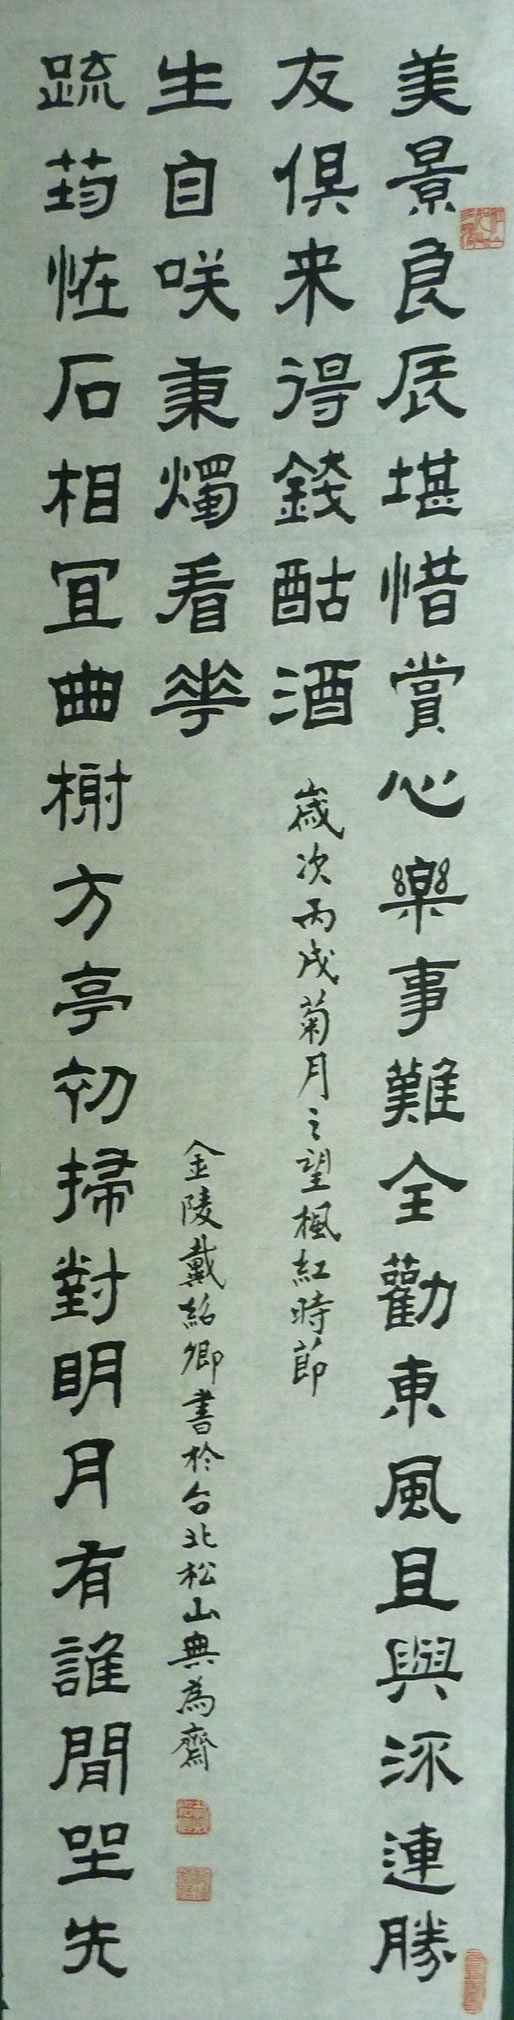 美景良辰堪惜賞心樂事難全勸東風且與流連勝
友俱来得錢酤酒
歲次丙戌菊月之望楓紅時節
䟽筠恠石相冝曲榭方亭初掃對明月有誰閒坐先
生自咲秉燭看花
金陵戴紹卿書於台北松山典為齋